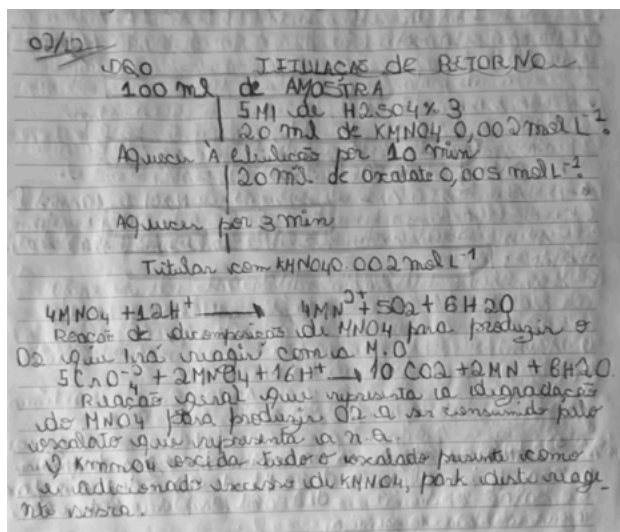 02/12
DQO TITULAÇÃO de RETORNO
100 ml de AMOSTRA
5 Ml de H2SO4 % 3
20 ml de KMNO4 0,002 mol L-1.
Aquecer À ebulição por 10 min
20 ml. de oxalato 0,005 mol L-1.
Aquecer por 3 min
Titular com KMNO4 0.002 mol L-1
4MNO4 + 12H+ → 4MN2+ + 5O2 + 6H2O
Reação de decomposição de MNO4 para produzir o
O2 que irá reagir com a M.O
+ 2MNO4 + 16H+ → 10 CO2 + 2MN + 8H2O.
Reação geral que representa a degradação
do MNO4 para produzir O2 a ser consumido pelo
oxalato que representa a
O KmnO4 oxida todo o oxalado presente como
é adicionado excesso de KMNO4, parte deste reage
nte sobra.